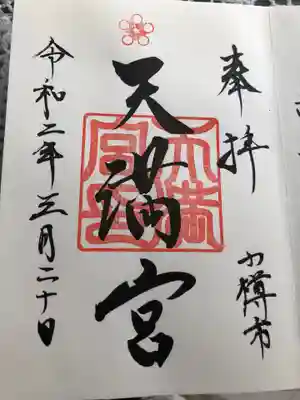 奉拝
小樽市
天満宮
天満宮
令和二年三月二十日